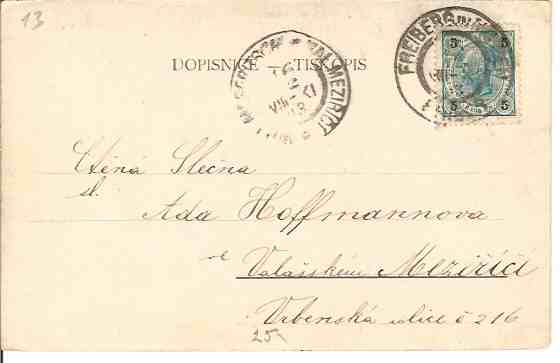 13
DOPISNICE — TISKOPIS
VAL. MEZIŘÍČÍ
FREIBERG IN M
5 5
5 5
Ctěná Slečna
sl.
Ada Hoffmannova
ve
Valašském Meziříčí
Vrbenská ulice č 216
25